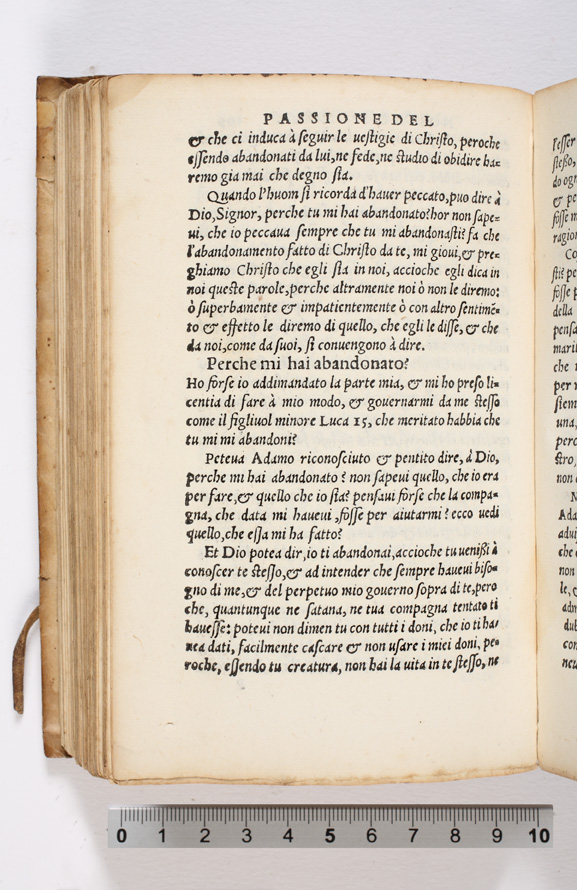 PASSIONE DEL
& che ci induca à seguir le uestigie di Christo, peroche
essendo abandonati da lui, ne fede, ne studio di obidire ha=
remo gia mai che degno sia.
Quando l'huom si ricorda d'hauer peccato, puo dire à
Dio, Signor, perche tu mi hai abandonato? hor non sape=
ui, che io peccaua sempre che tu mi abandonasti? fa che
l'abandonamento fatto di Christo da te, mi gioui, & pre=
ghiamo Christo che egli sia in noi, accioche egli dica in
noi queste parole, perche altramente noi ò non le diremo:
ò superbamente & impatientemente ò con altro sentimē=
to & effetto le diremo di quello, che egli le disse, & che
da noi, come da suoi, si conuengono à dire.
Perche mi hai abandonato?
Ho forse io addimandato la parte mia, & mi ho preso li=
centia di fare à mio modo, & gouernarmi da me stesso
come il figliuol minore Luca 15, che meritato habbia che
tu mi mi abandoni?
Peteua Adamo riconosciuto & pentito dire, à Dio,
perche mi hai abandonato? non sapeui quello, che io era
per fare, & quello che io sia? pensaui forse che la compa=
gna, che data mi haueui, fosse per aiutarmi? ecco uedi
quello, che essa mi ha fatto?
Et Dio potea dir, io ti abandonai, accioche tu uenißi à
conoscer te stesso, & ad intender che sempre haueui biso=
gno di me, & del perpetuo mio gouerno sopra di te, pero
che, quantunque ne satana, ne tua compagna tentato ti
hauesse: poteui non dimen tu con tutti i doni, che io ti ha=
uea dati, facilmente cascare & non usare i miei doni, pe=
roche, essendo tu creatura, non hai la uita in te stesso, ne
l'esser
stesso,
do ogn
& pe
fosse
ragion
Co
fosse p
della
pensa
che
per
una,
perc
stro,
non
Ada
adui
che
non
con
0 1 2 3 4 5 6 7 8 9 10